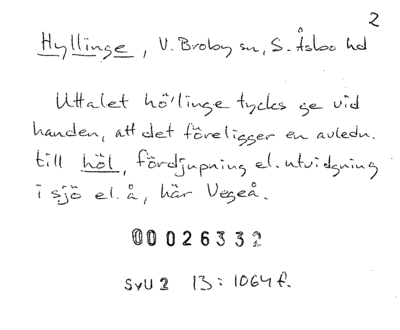 2
Hyllinge, V. Broby sn, S. Åsbo hd
Uttalet hö'linge tycks ge vid
handen, att det föreligger en avledn.
till höl, fördjupning el. utvidgning
i sjö el. å, här Vegeå.
00026332
SvU 2 13: 1064 f.